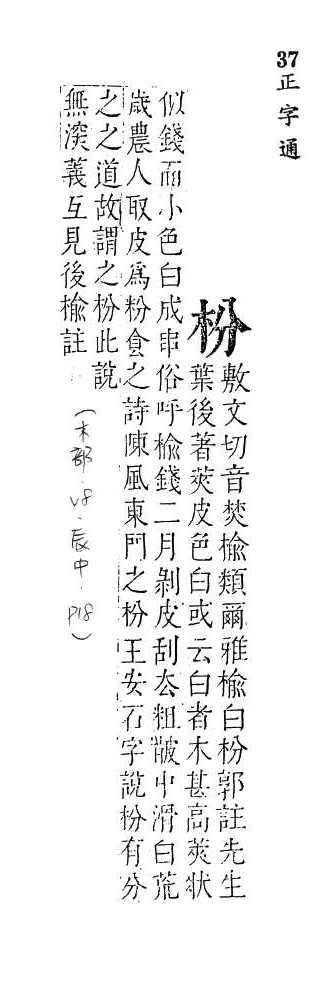 37正字通
枌
敷文切音焚榆類爾雅榆白枌郭註先生
葉後著莢皮色白或云白者木甚高莢狀
似錢而小色白成串俗呼榆錢二月剝皮刮厺粗皵中滑白荒
歲農人取皮爲粉食之詩陳風東門之枌王安石字說枌有分
之之道故謂之枌此說
無深義互見後榆註
(木部.V8.辰中.P18)